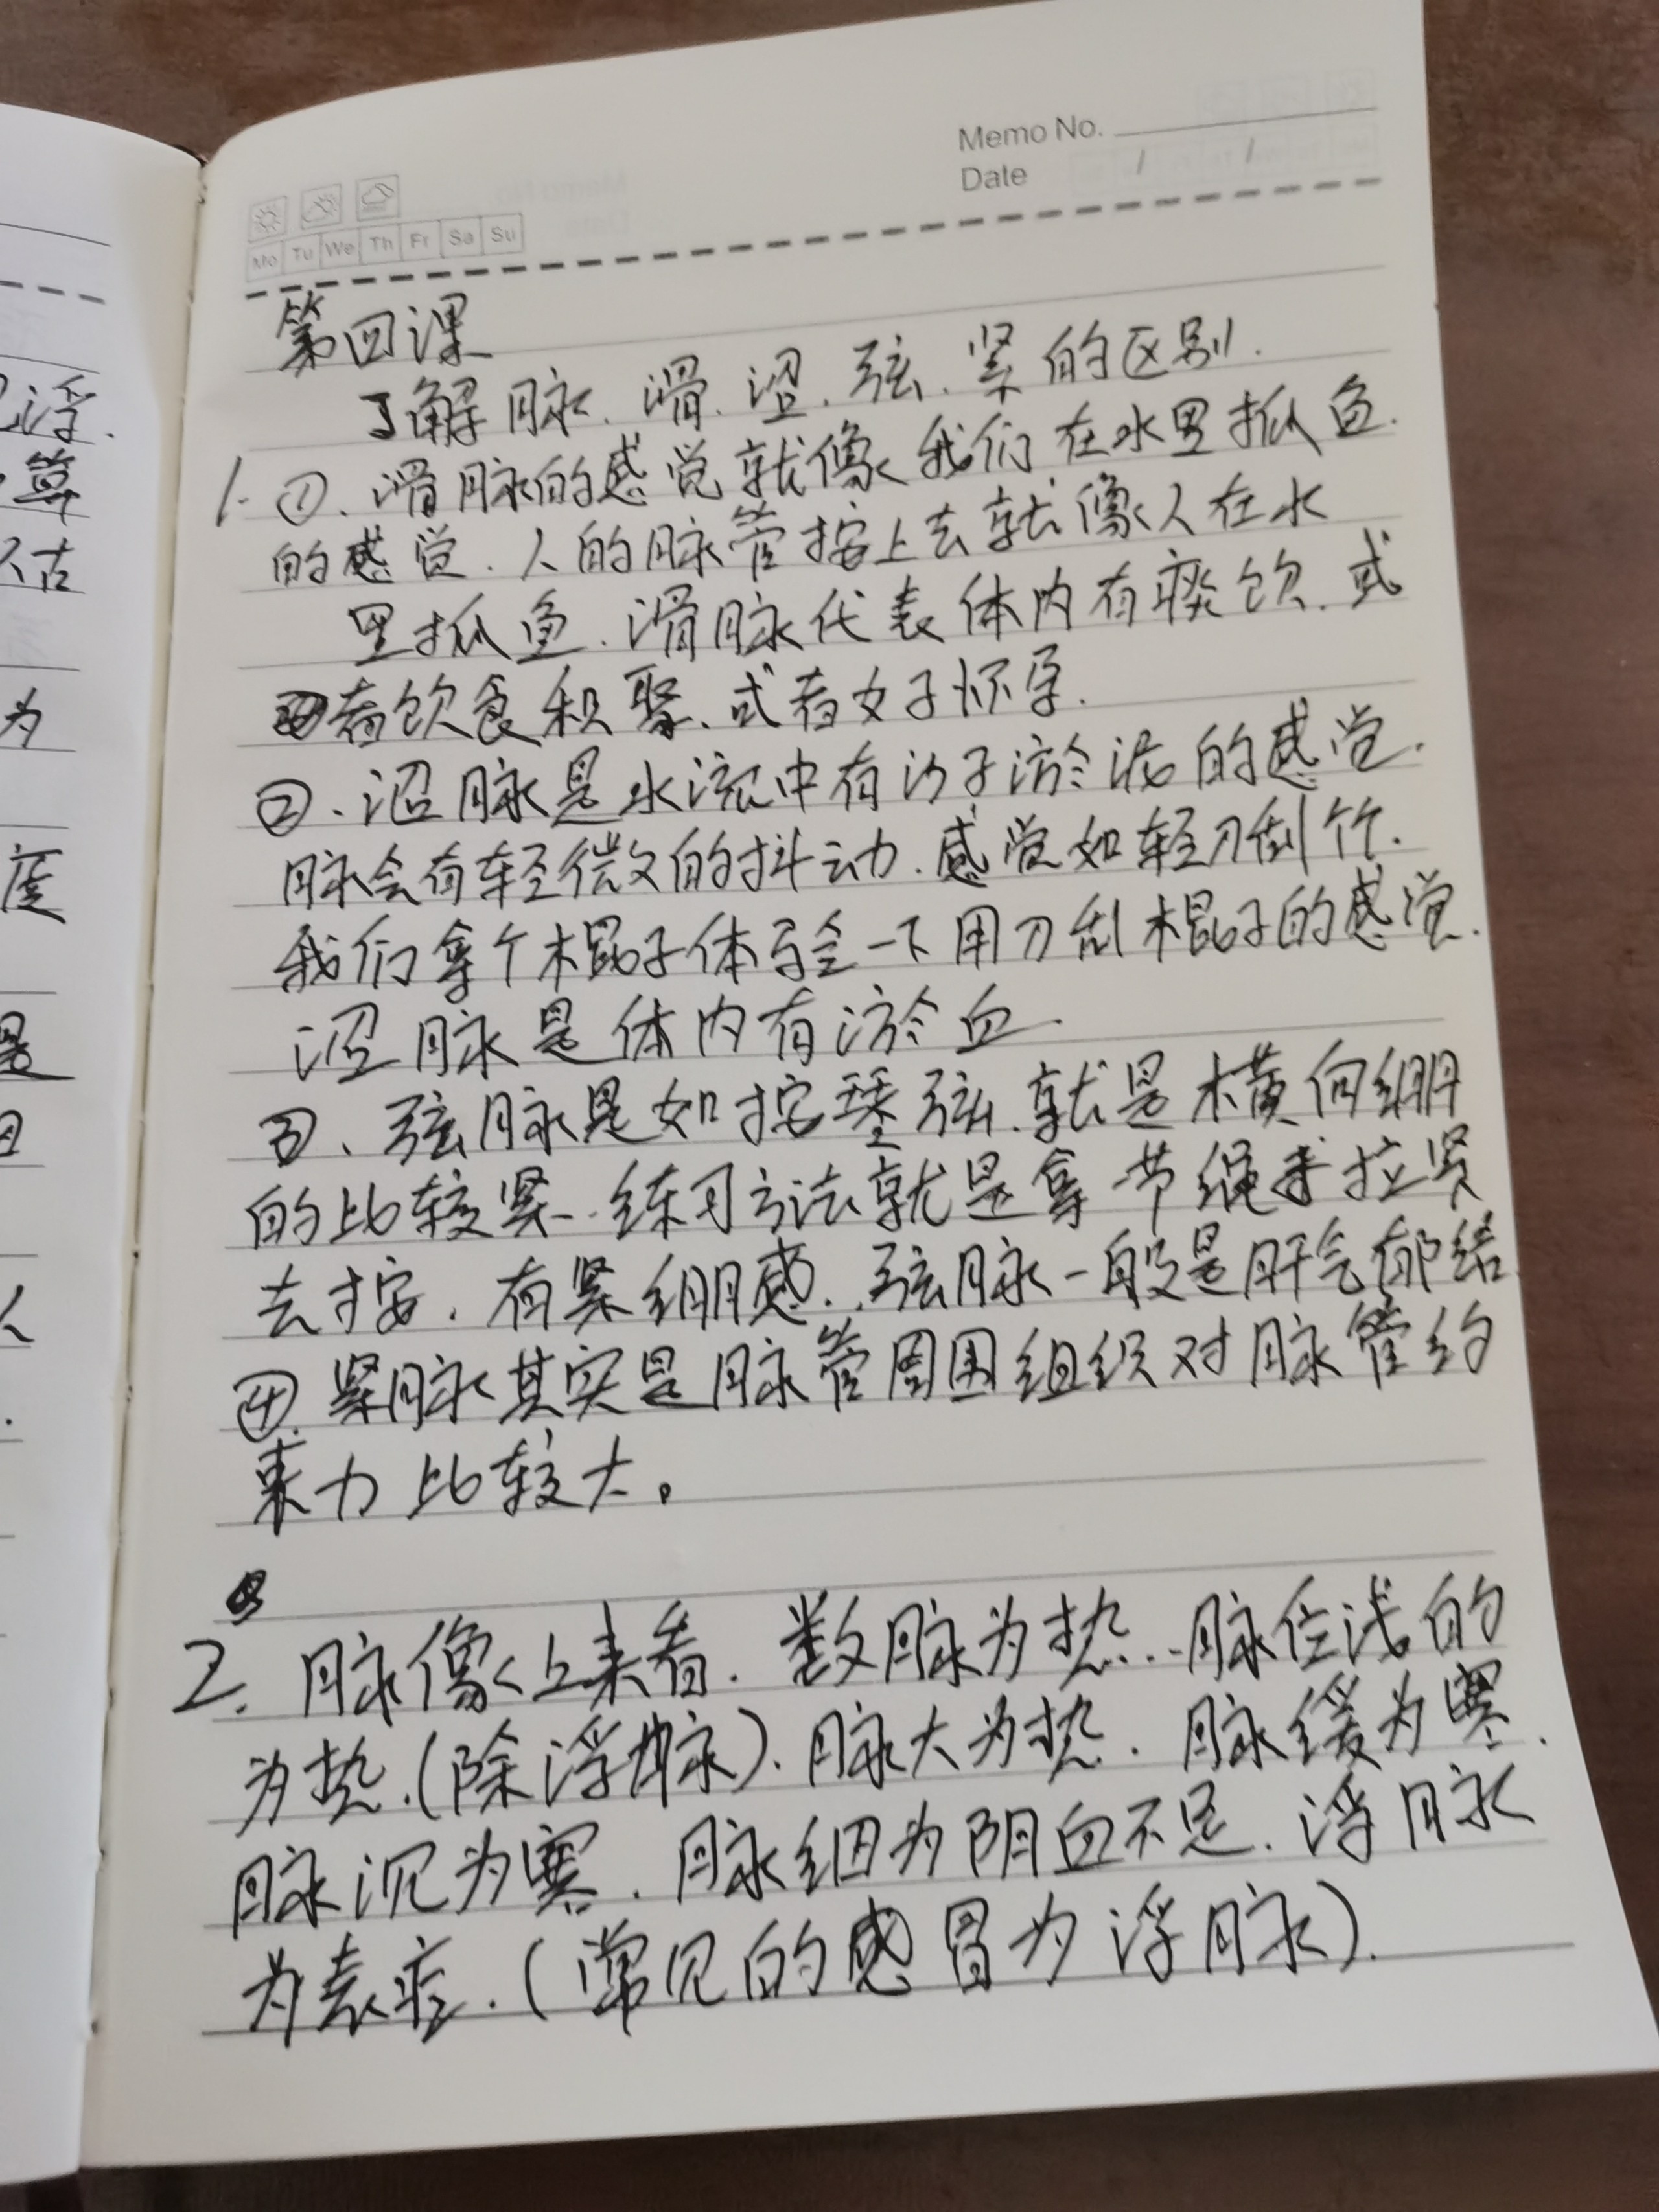 Memo No.
Date / /
Mo Tu We Th Fr Sa Su
第四课
了解脉.滑.涩.弦.紧的区别.
1.①.滑脉的感觉就像我们在水里抓鱼.
的感觉.人的脉管按上去就像人在水
里抓鱼.滑脉代表体内有痰饮.或
者饮食积聚、或者女子怀孕.
②、涩脉是水流中有沙子淤泥的感觉.
脉会有轻微的抖动.感觉如轻刀刮竹.
我们拿个木棍子体验一下用刀刮木棍子的感觉.
涩脉是体内有淤血.
③、弦脉是如按琴弦.就是横向绷
的比较紧.练习方法就是拿一节绳来拉紧
去按.有紧绷感.弦脉一般是肝气郁结
④.紧脉其实是脉管周围组织对脉管约
束力比较大。
2.脉像上来看.数脉为热..脉位浅的
为热.(除浮脉).脉大为热.脉缓为寒.
脉沉为寒.脉细为阴血不足.浮脉
为表症.(常见的感冒为浮脉).
浮.
算
古
为
度
是